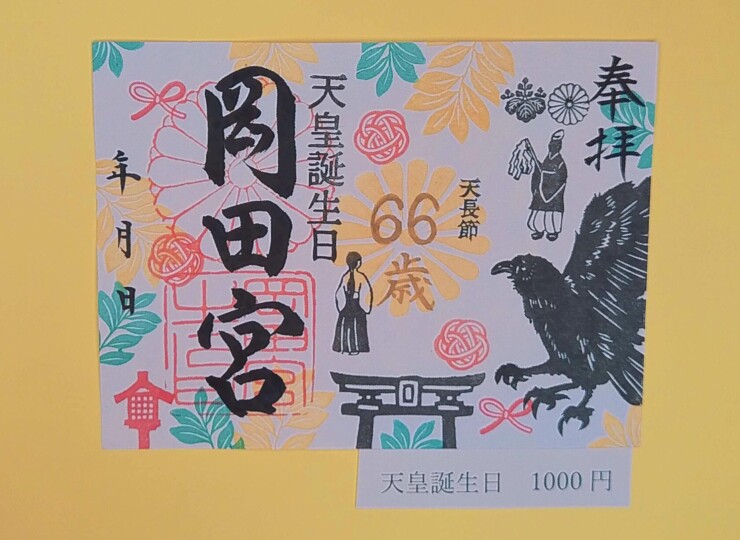 奉拝
天長節
66
歳
天皇誕生日
岡田宮
年月日
天皇誕生日 1000円